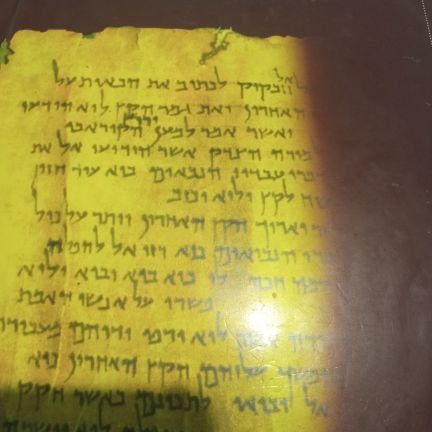 אל חבקוק לכתוב את הבאות על
האחרון ואת גמר הקץ לוא הודעו
ואשר אמר למען ירוץ הקורא בו
מורה הצדק אשר הודיעו אל את
דברי עבדיו הנבאים כיא עוד חזון
לקץ ולוא יכזב
יארוך הקץ האחרון ויתר על כול
הנביאים כיא רזי אל להפלה
חכה לו כיא בוא יבוא ולוא
פשרו על אנשי האמת
אשר לוא ירפו ידיהם מעבודת
בהמשך עליהם הקץ האחרון כיא
אל יבואו לתכונם כאשר חקק